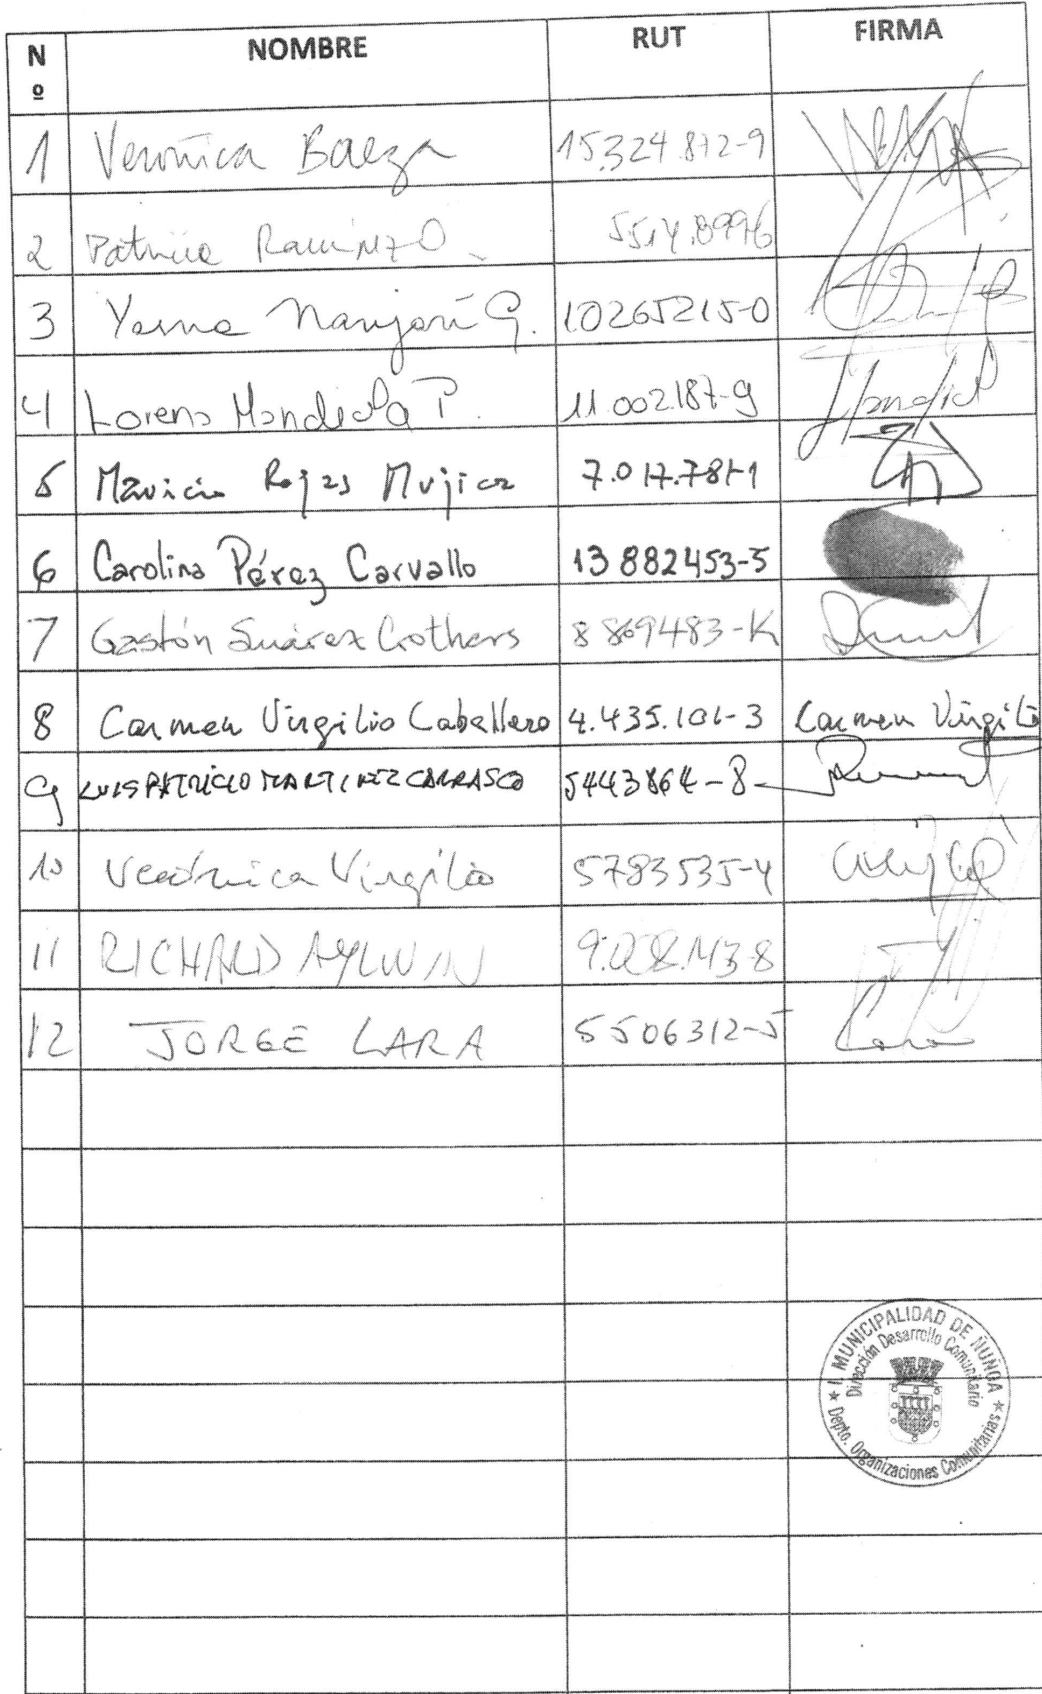 Nº NOMBRE RUT FIRMA
1 Veronica Baeza 15.324.872-9
2 Ramirez O.
3 Yasna G. 10265215-0
4 Lorena Mondiola P. 11.002.187-9
5 Rojas Mujica 7.017.781-1
6 Carolina Pérez Carvallo 13 882453-5
7 Gastón Suárez Crothers 8 869483-K
8 Carmen Virgilio Caballero 4.435.101-3 Carmen Virgilio
9 LUIS PATRICIO MARTINEZ CARRASCO 5443864-8
10 Verónica Virgilio 5783535-4
11 RICHARD AYLWIN
12 JORGE LARA 5506312-5 Lara
I. MUNICIPALIDAD DE ÑUÑOA
Dirección Desarrollo Comunitario
Depto. Organizaciones Comunitarias